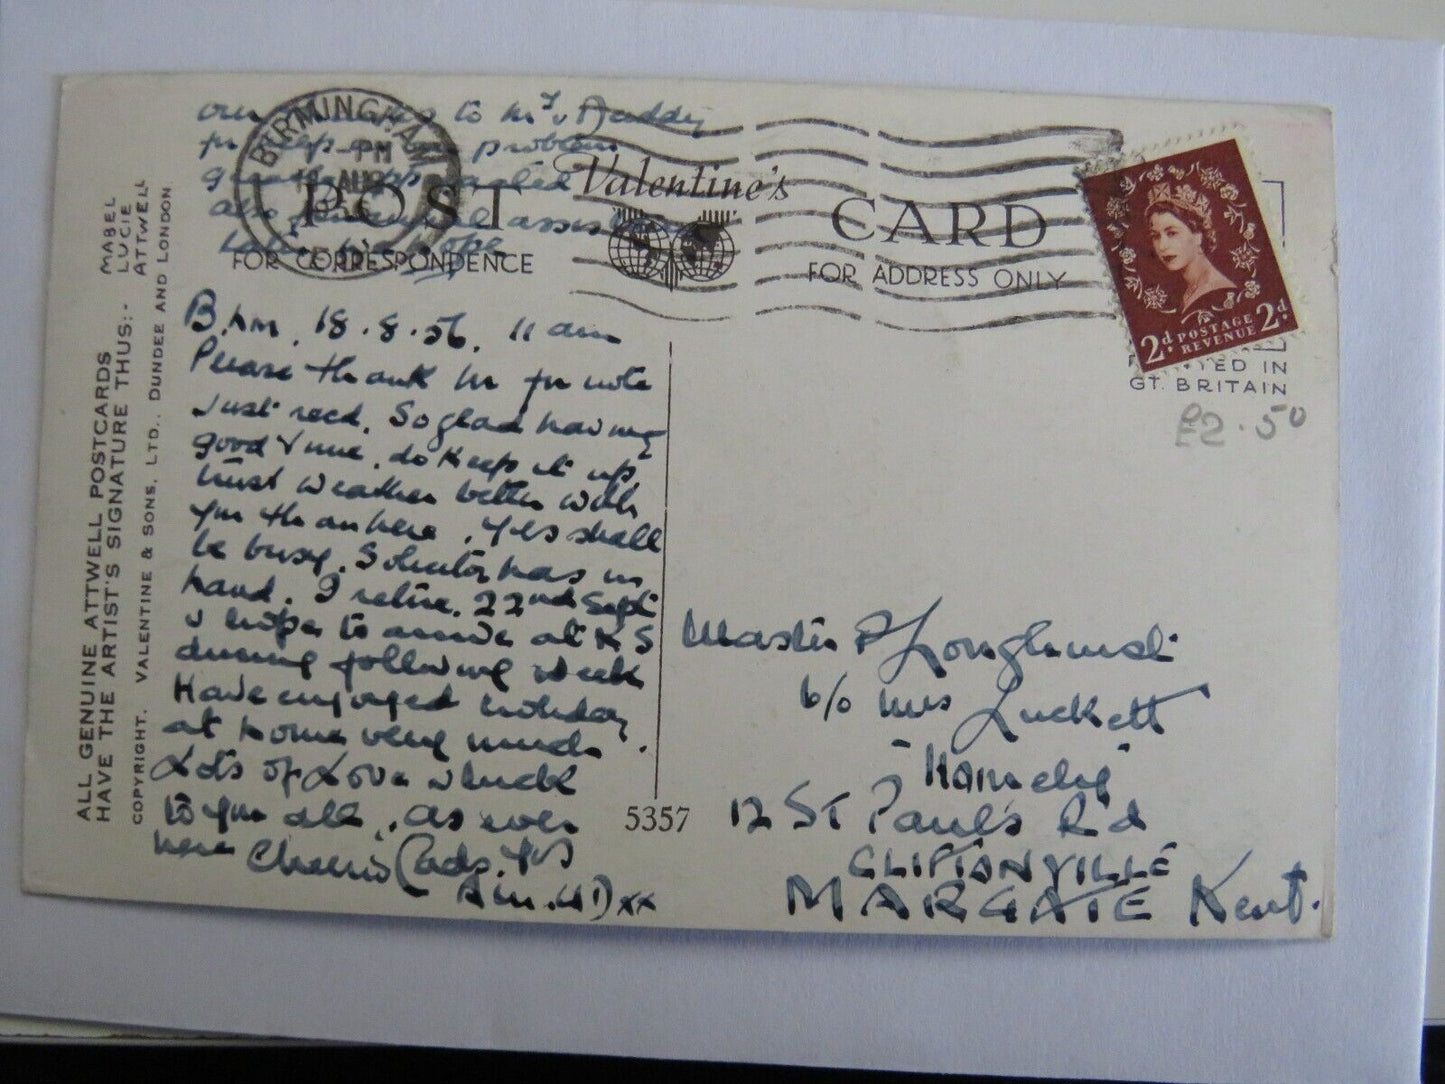 to
problem
also
hope
BIRMINGHAM
PM
AUG
POST
FOR CORRESPONDENCE
Valentine's
CARD
FOR ADDRESS ONLY
2d POSTAGE REVENUE 2d
TED IN
GT. BRITAIN
£2.50
ALL GENUINE ATTWELL POSTCARDS
HAVE THE ARTIST'S SIGNATURE THUS:-
MABEL
LUCIE
ATTWELL
COPYRIGHT. VALENTINE & SONS, LTD., DUNDEE AND LONDON.
B.ham, 18.8.56. 11 am
Please thank M for note
just recd. So glad having
good time, do keep it up,
trust weather better with
you than here, Yes shall
be busy. Solicitor has in
hand. I retire. 22nd Sept
& hope to arrive at K S
during following week
Have enjoyed holiday
at home very much.
Lots of Love & luck
to you all, as ever
here Cheerio
xx
5357
Master P Longhurst
c/o Mrs Luckett
12 ST Paul's Rd
CLIFTANVILLE
MARGATE Kent.